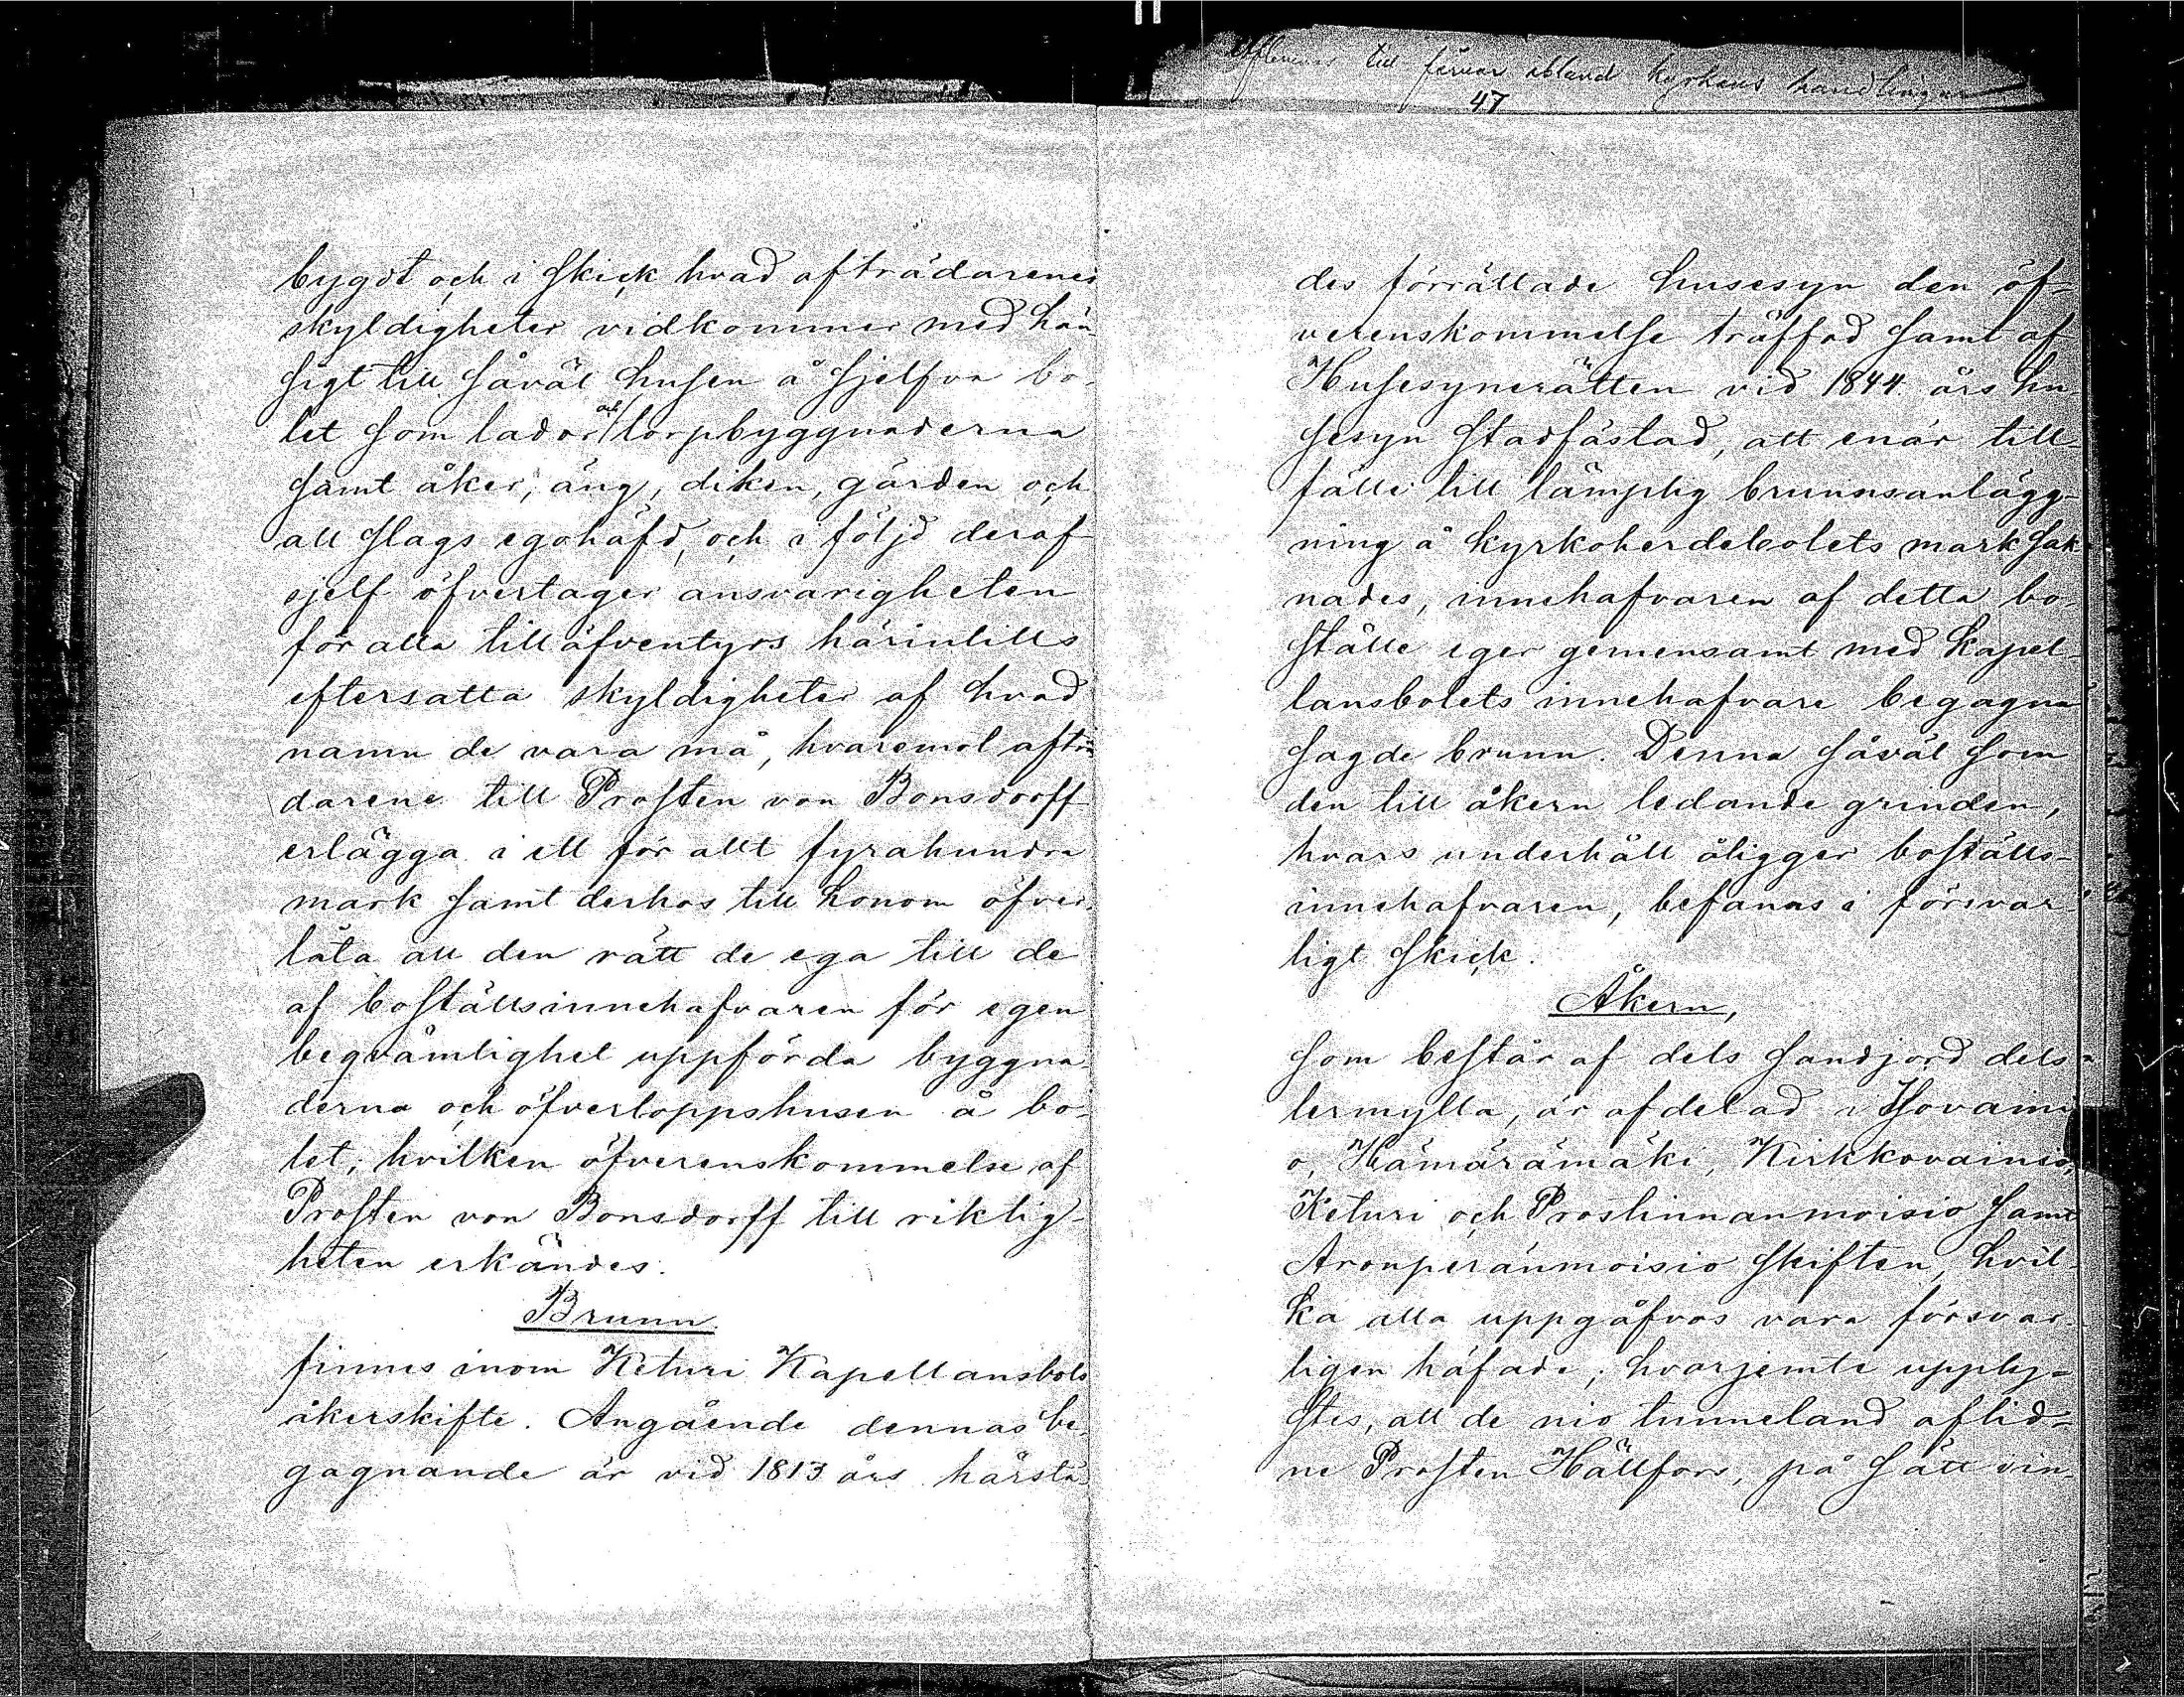 till förvar ibland kyrkans handlingar
47
bygdt och i skick hvad afträdarenes
skyldigheter vidkommer med hän
sigt till såväl husen å sjelfva bo-
let som lador och torpbyggnaderna
samt åker, äng, diken, gärden och
all slags egohäfd, och i följd deraf
sjelf öfvertager ansvarigheten
för alla till äfventyrs härintills
eftersatta skyldigheter af hvad
namn de vara må, hvaremot afträ
darene till Prosten von Bonsdorff
erlägga i ett för allt fyrahundra
mark samt derhos till honom öfver-
låta all den rätt de ega till de
af boställsinnehafvaren för egen
beqvämlighet uppförda byggna-
derna och öfverloppshusen å bo-
let; hvilken öfverenskommelse af
Prosten von Bonsdorff till riktig-
heten erkändes.
Brunn.
finnes inom Keturi Kapellansbols
åkerskifte. Angående dennas be-
gagnande är vid 1813 års härstä-
des förrättade husesyn den öf-
verenskommelse träffad samt af
Husesynerätten vid 1844 års hu-
sesyn stadfästad, att enär till-
fälle till lämplig brunnsanlägg-
ning å kyrkoherdebolets mark sak
nades, innehafvaren af detta bo-
ställe eger gemensamt med kapel-
lansbolets innehafvare begagna
sagde brunn. Denna såväl som
den till åkern ledande grinden,
hvars underhåll åligger boställs-
innehafvaren, befanns i försvar-
ligt skick.
Åkern,
som består af dels sandjord dels
lermylla, är afdelad i Isovaini
o, Hämärämäki, Kirkkovainio,
Keturi och Prostinnanmoisio samt
Aronperänmoisio skiften, hvil-
ka alla uppgåfvos vara försvar-
ligen häfade; hvarjemte upply-
stes, att de nio tunneland aflid-
ne Prosten Hällfors, på sätt vin-